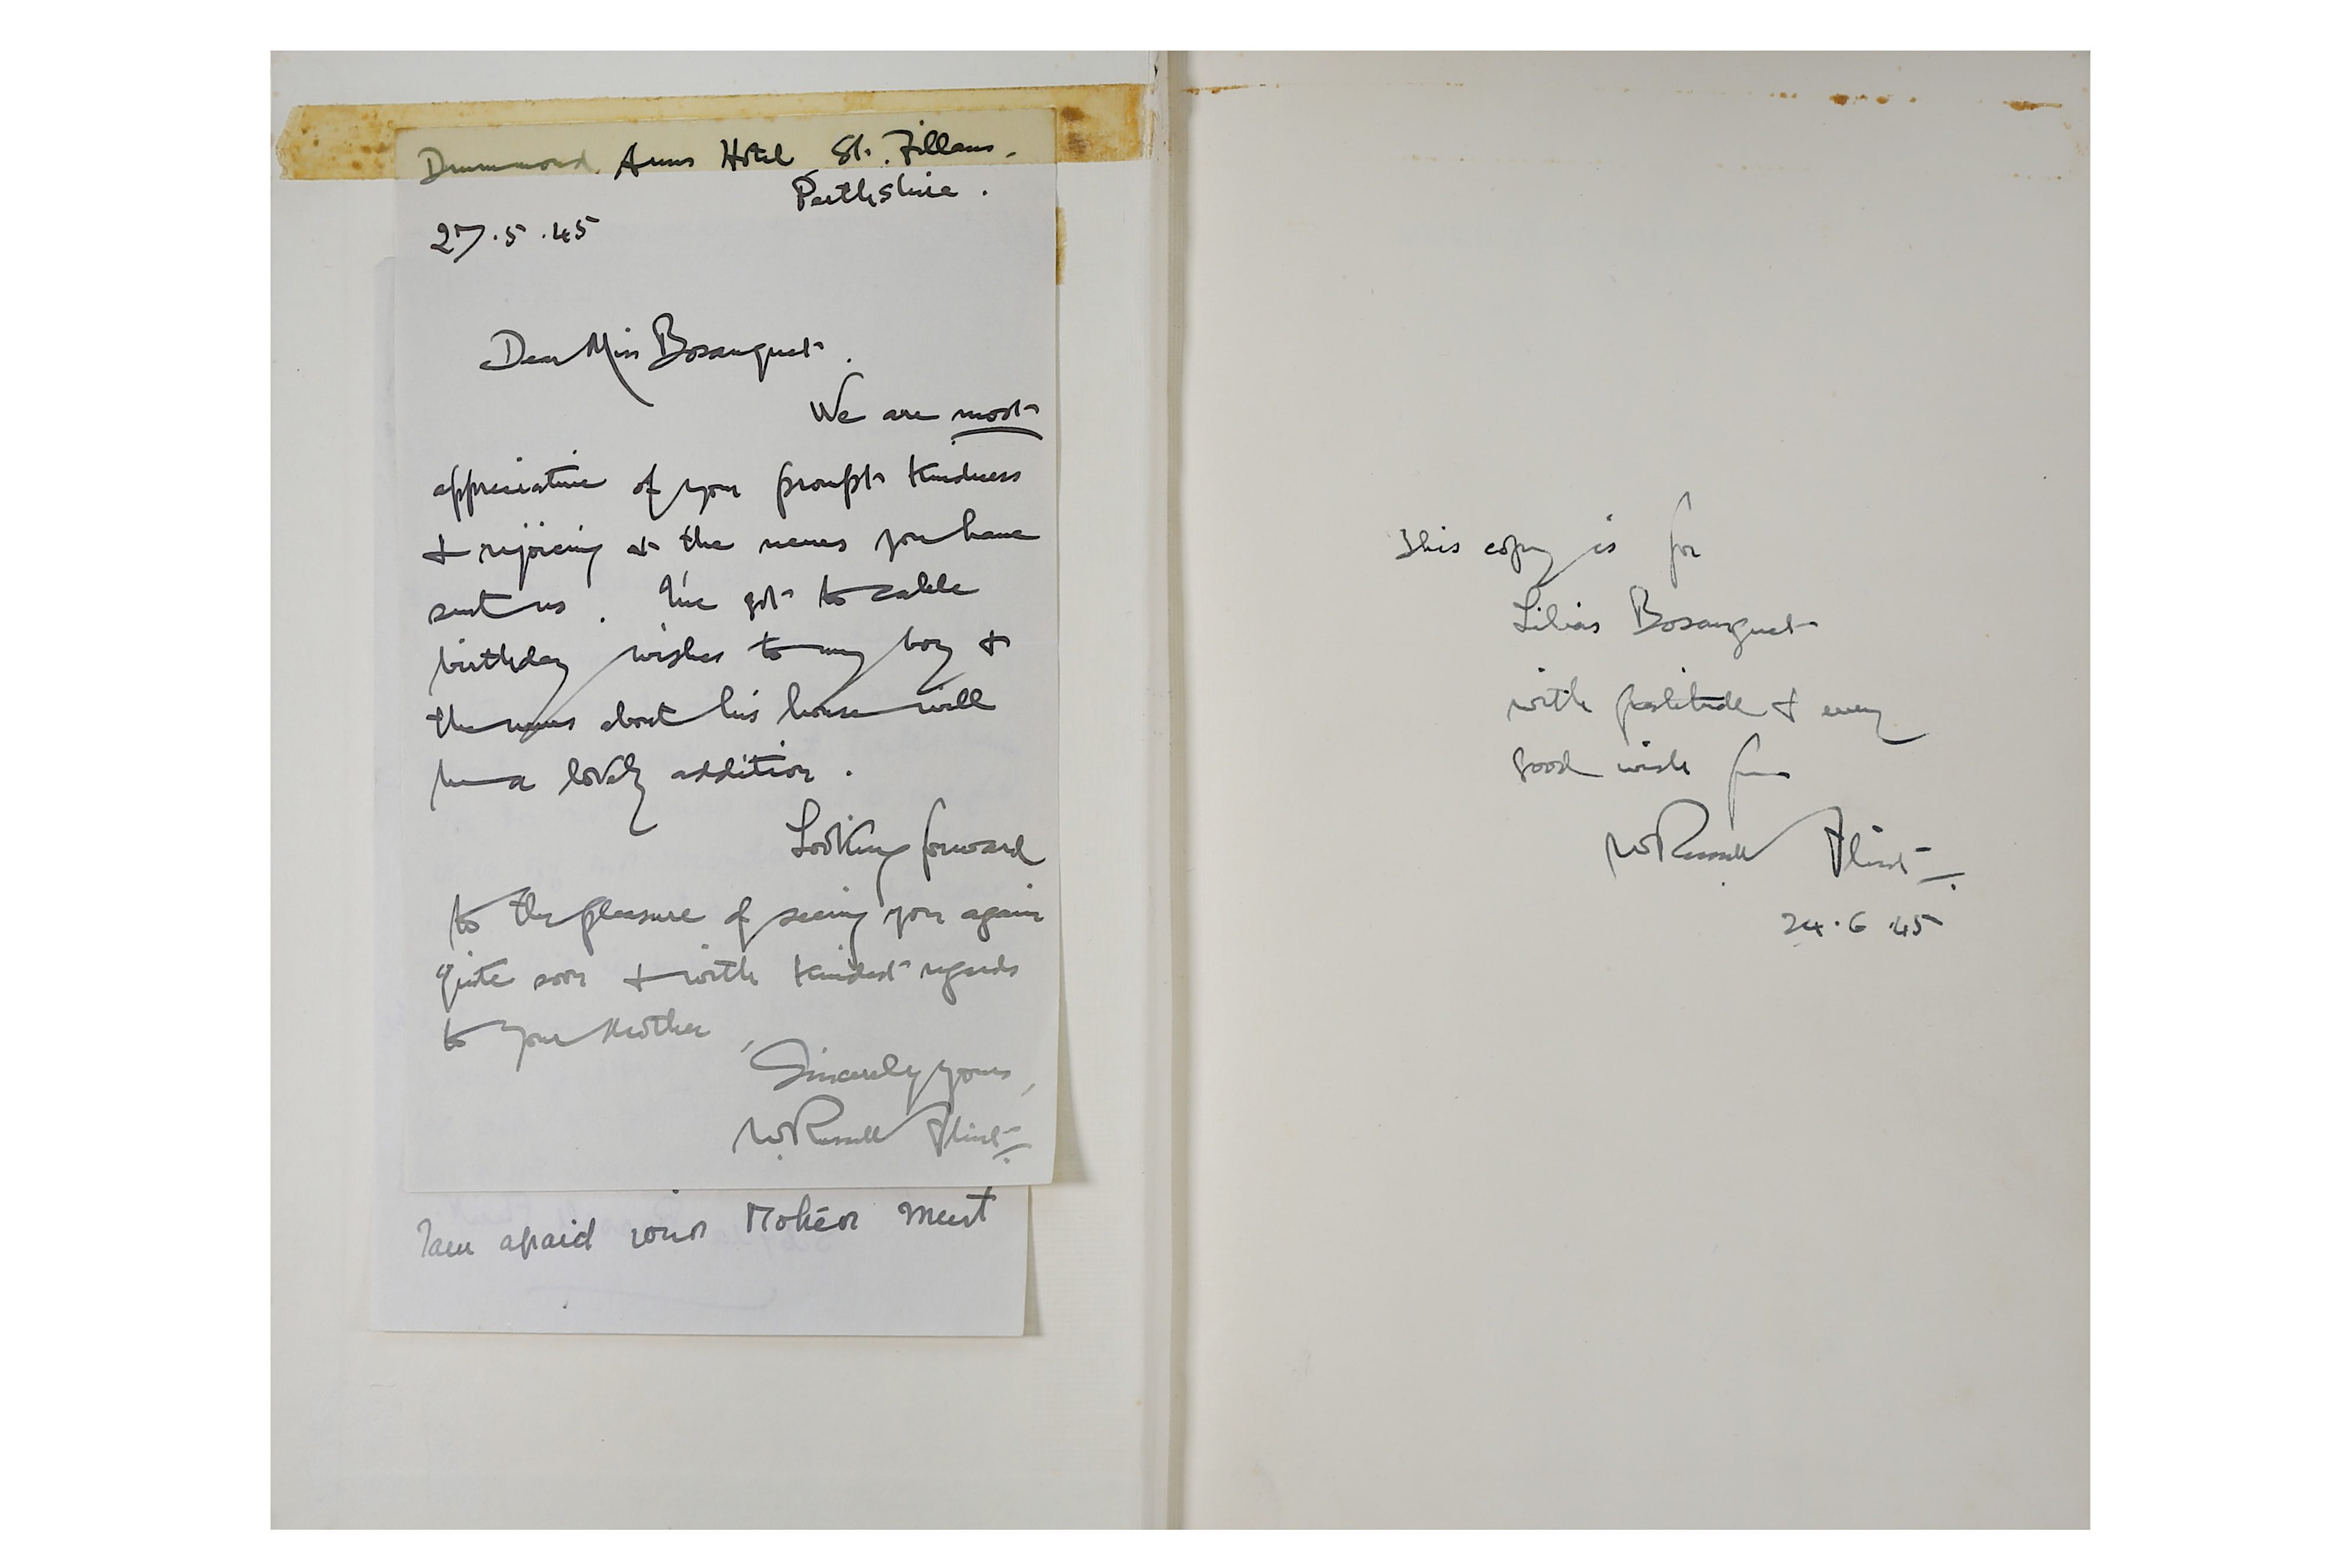 Drummond Arms Hotel St. Fillans.
Perthshire.
27.5.45
Dear Miss Bosanquet.
We are most
appreciative of your prompt kindness
& rejoicing at the news you have
sent us. I've got to cable
birthday wishes to my boy &
the news about his house will
be a lovely addition.
Looking forward
to the pleasure of seeing you again
quite soon & with kindest regards
to your Mother,
Sincerely yours,
W Russell Flint
I am afraid your Mother must
This copy is for
Lilias Bosanquet
with gratitude & every
good wish from
W Russell Flint
24.6.45